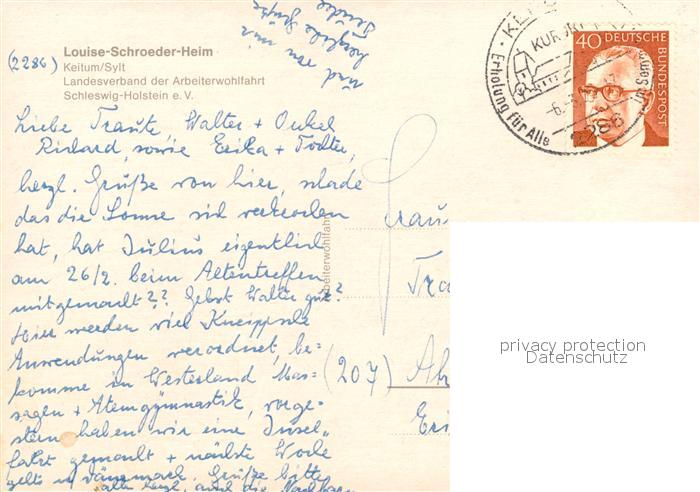 (2286)
Louise-Schroeder-Heim
Keitum/Sylt
Landesverband der Arbeiterwohlfahrt
Schleswig-Holstein e. V.
und von mir
herzliche Grüße
KURORT
Erholung für Alle
2286
40 DEUTSCHE BUNDESPOST
Liebe Traute, Walter + Onkel
Richard, sowie Erika + Tochter,
herzl. Grüße von hier, schade
das die Sonne sich verkrochen
hat, hat Julius eigentlich
am 26/2. beim Altentreffen
mitgemacht?? Gehst Walter gut?
Hier werden viel Kneippsche
Anwendungen verordnet, be-
komme in Westerland Mas-
sagen + Atemgymnastik, vorge-
stern haben wir eine Insel-
fahrt gemacht + nächste Woche
gehts n. Dänemark. Grüße bitte
alle herzl. auch die Nachbarn
Frau
Tra
(207) Ah
Eri
arbeiterwohlfahr
privacy protection
Datenschutz